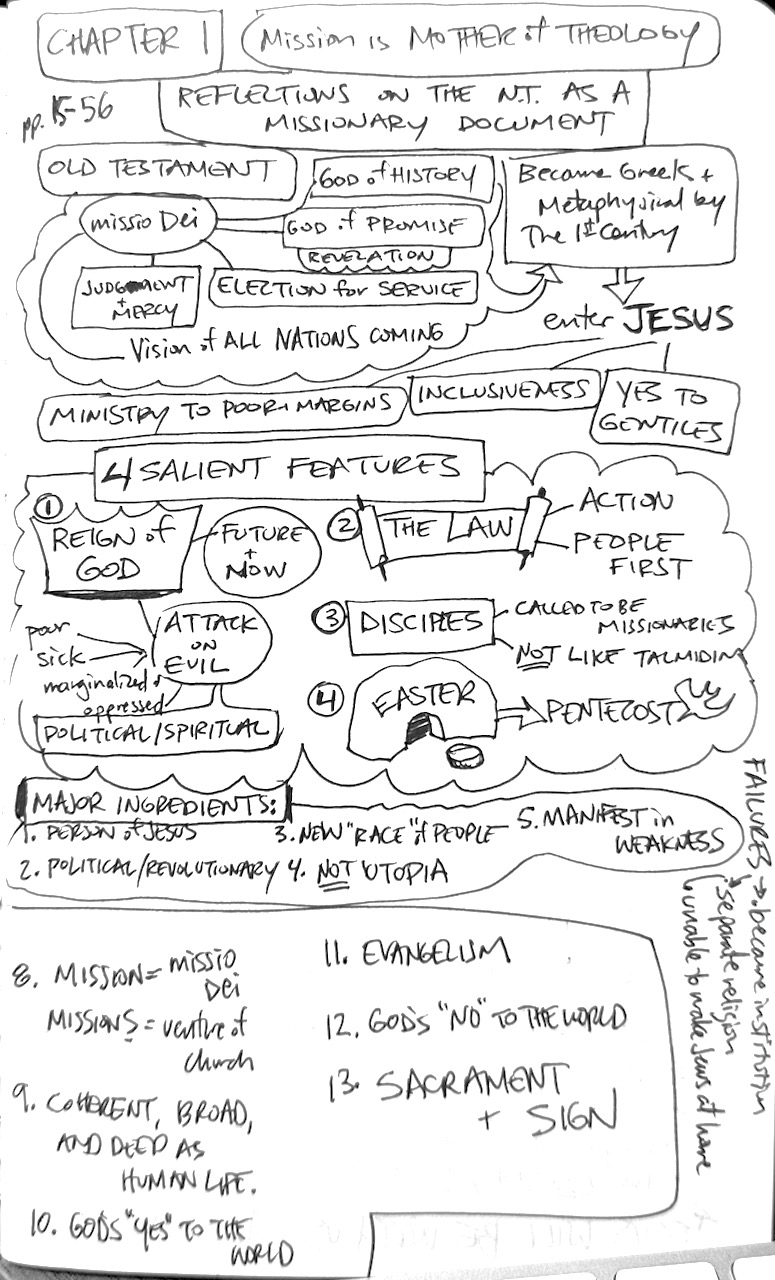 CHAPTER 1
Mission is MOTHER of THEOLOGY
pp. 15-56
REFLECTIONS ON THE N.T. AS A
MISSIONARY DOCUMENT
OLD TESTAMENT
missio Dei
GOD of HISTORY
GOD of PROMISE
REVELATION
JUDGMENT
+
MERCY
ELECTION for SERVICE
Vision of ALL NATIONS COMING
Became Greek +
Metaphysical by
The 1st Century
enter JESUS
MINISTRY TO POOR + MARGINS
INCLUSIVENESS
YES TO
GENTILES
4 SALIENT FEATURES
1
REIGN of
GOD
FUTURE
+
NOW
ATTACK
ON
EVIL
poor
sick
marginalized +
oppressed
POLITICAL/SPIRITUAL
2
THE LAW
ACTION
PEOPLE
FIRST
3
DISCIPLES
CALLED TO BE
MISSIONARIES
NOT LIKE TALMIDIM
4
EASTER
PENTECOST
MAJOR INGREDIENTS:
1. PERSON of JESUS
2. POLITICAL/REVOLUTIONARY
3. NEW "RACE" of PEOPLE
4. NOT UTOPIA
5. MANIFEST in
WEAKNESS
FAILURES → • became institution
• separate religion
• unable to make Jews at home
8. MISSION = missio
Dei
MISSIONS = venture of
church
9. COHERENT, BROAD,
AND DEEP AS
HUMAN LIFE.
10. GOD'S "YES" TO THE
WORLD
11. EVANGELISM
12. GOD'S "NO" TO THE WORLD
13. SACRAMENT
+ SIGN